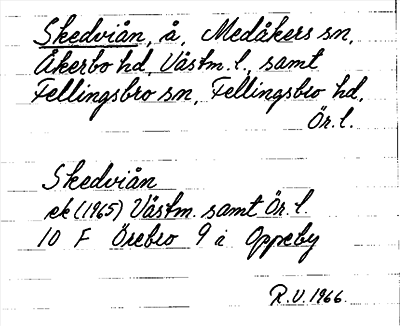 Skedviån, å, Medåkers sn,
Åkerbo hd, Västm. l., samt
Fellingsbro sn, Fellingsbro hd,
Ör. l.
Skedviån
ek (1965) Västm. samt Ör. l.
10 F Örebro 9 i Oppeby
R.V. 1966.